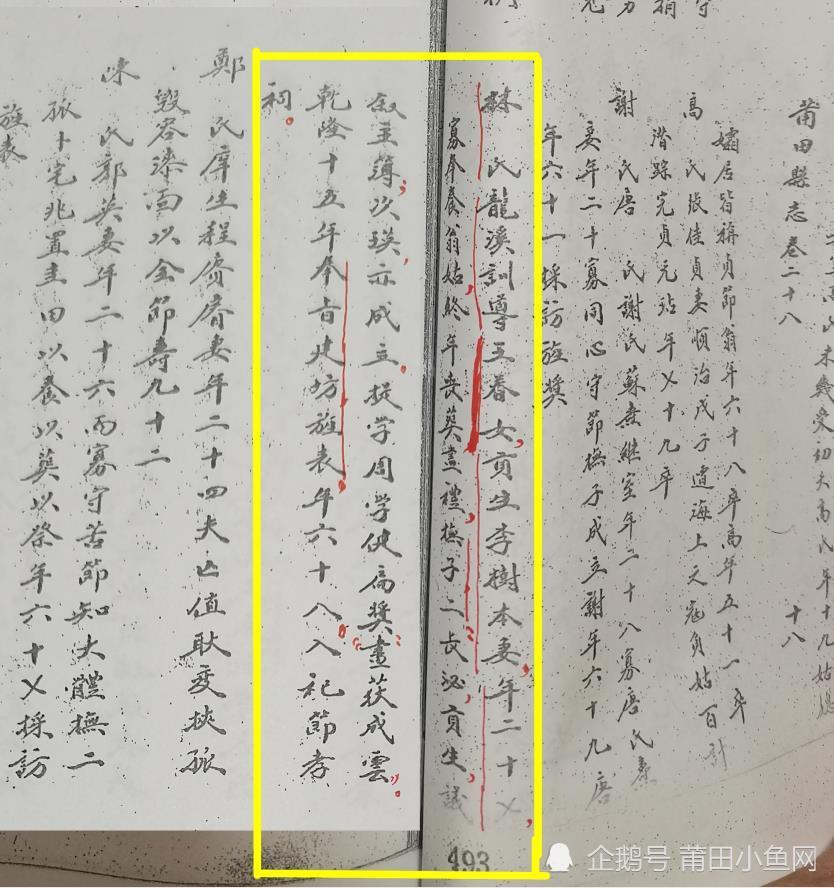 莆田縣志卷二十八 十八
孀居皆稱貞節翁年六十八卒高年五十一卒
高氏張佳貞妻順治戊子遭海上之寇負姑百計
潛踪完貞元 年乂十九卒
謝氏唐氏謝氏蘇 繼室年二十八寡唐氏
妾年二十寡同心守節撫子成立謝年六十九唐
年六十一採訪旌獎
林氏龍溪訓導王春女貢生李樹本妻年二十乂
寡奉養翁姑終年喪葬盡禮撫子二長泌貢生議
叙主薄次瑛亦成立提学周学健扁獎畫荻成雲
乾隆十五年奉旨建坊旌表年六十八入祀節孝
祠
鄭氏庠生程賡 妻年二十四夫亡值耿变挾孤
毀容漆面以全節壽九十二
陳氏郭英妻年二十六而寡守苦節知大體撫二
孤卜宅兆置圭田以養以葬以祭年六十乂採訪
旌表
493
企鹅号 莆田小鱼网